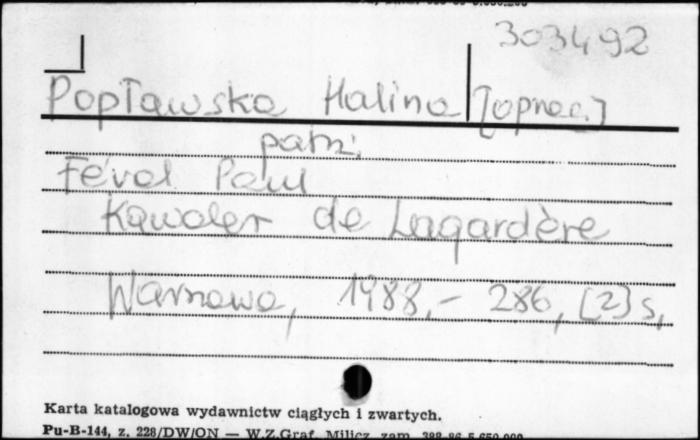 303492
Popławska Halina [oprac.]
patrz:
Féval Paul
Kawaler de Lagardère
Warszawa, 1988.- 286, [2] s.
Karta katalogowa wydawnictw ciągłych i zwartych.
Pu-B-144, z. 228/DW/ON — W.Z.Graf. Milicz, zam. 388-86 5.650.000